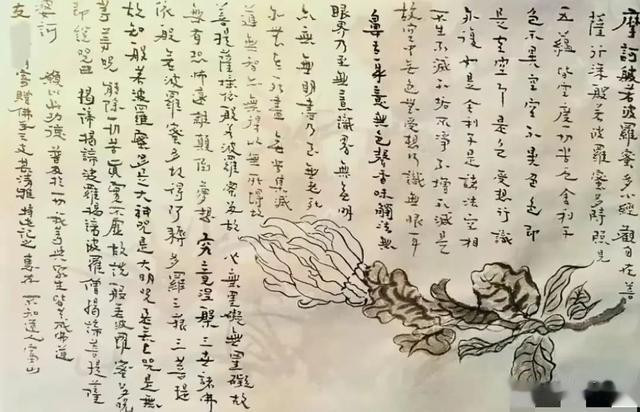 摩訶般若波羅蜜多心經 觀自在菩
薩行深般若波羅蜜多時照見
五蘊皆空度一切苦厄舍利子
色不異空空不異色色即
是空空即是色受想行識
亦復如是舍利子是諸法空相
不生不滅不垢不淨不增不減是
故空中無色無受想行識無眼耳
鼻舌身意無色聲香味觸法無
眼界乃至無意識界無無明
亦無無明盡乃至無老死
亦無老死盡無苦集滅
道無智亦無得以無所得故
菩提薩埵依般若波羅蜜多故心無罣礙無罣礙故
無有恐怖遠離顛倒夢想究竟涅槃三世諸佛
依般若波羅蜜多故得阿耨多羅三藐三菩提
故知般若波羅蜜多是大神咒是大明咒是無上咒是無
等等咒能除一切苦真實不虛故說般若波羅蜜多咒
即說咒曰揭諦揭諦波羅揭諦波羅僧揭諦菩提薩
婆訶 願以此功德普及於一切我等與眾生皆共成佛道
友